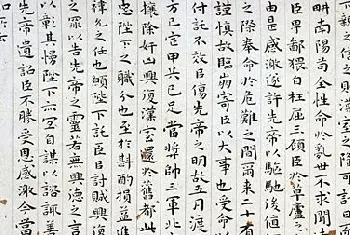 下親之信之則漢室之隆
畊南陽苟全性命於乱世不求聞
臣卑鄙猥自枉屈三顧臣於草廬之
是感激遂許先帝以驅馳後值
之際奉命於危難之間爾来二十有
謹慎故臨崩寄臣以大事也受命以
付託不效以傷先帝之明故五月渡
方已定甲兵已足當奬帥三軍北
攘除奸凶興復漢室還於舊都此
忠陛下之職分也至於斟酌損益進
禕允之任也願陛下託臣討賊興復
之罪以告先帝之靈若無興德之言
以彰其慢陛下亦宜自謀以諮諏善
先帝遺詔臣不勝受恩感激今當